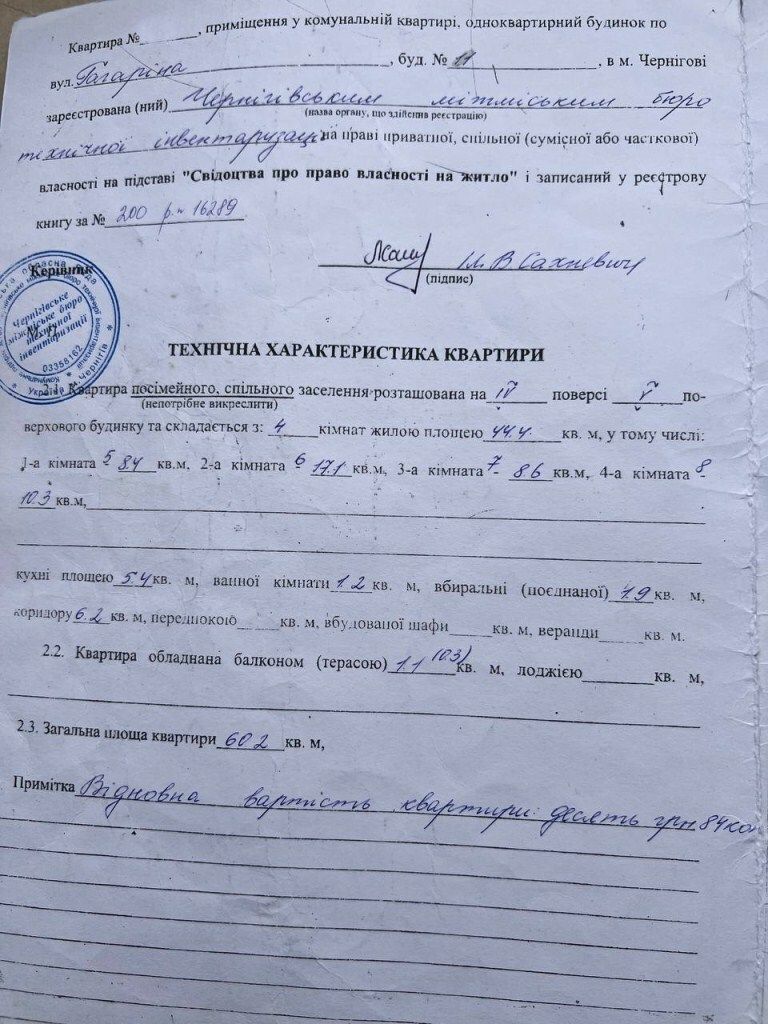 Квартира №_______, приміщення у комунальній квартирі, одноквартирний будинок по
вул. Гагаріна, буд. № 11, в м. Чернігові
зареєстрована (ний) Чернігівським міжміським бюро
(назва органу, що здійснює реєстрацію)
технічної інвентаризації на праві приватної, спільної (сумісної або часткової)
власності на підставі "Свідоцтва про право власності на житло" і записаний у реєстрову
книгу за № 200 р-н 16289
(підпис)
Керівник
М. П.
Чернігівське
міжміське бюро
технічної
інвентаризації
03358162
Україна * м. Чернігів
ТЕХНІЧНА ХАРАКТЕРИСТИКА КВАРТИРИ
2.1. Квартира посімейного, спільного заселення розташована на IV поверсі V по-
(непотрібне викреслити)
верхового будинку та складається з: 4 кімнат жилою площею 44.4 кв. м, у тому числі:
1-а кімната 5 8.4 кв.м, 2-а кімната 6 17.1 кв.м, 3-а кімната 7 8.6 кв.м, 4-а кімната 8
10.3 кв.м,
кухні площею 5.4 кв. м, ванної кімнати 1.2 кв. м, вбиральні (поєднаної) 1.9 кв. м,
коридору 6.2 кв. м, передпокою_____ кв. м, вбудованої шафи_____ кв. м, веранди_____ кв. м.
2.2. Квартира обладнана балконом (терасою) 1.1 (0.3) кв. м, лоджією________ кв. м,
2.3. Загальна площа квартири 60.2 кв. м,
Примітка Відновна вартість квартири: десять грн. 84 коп